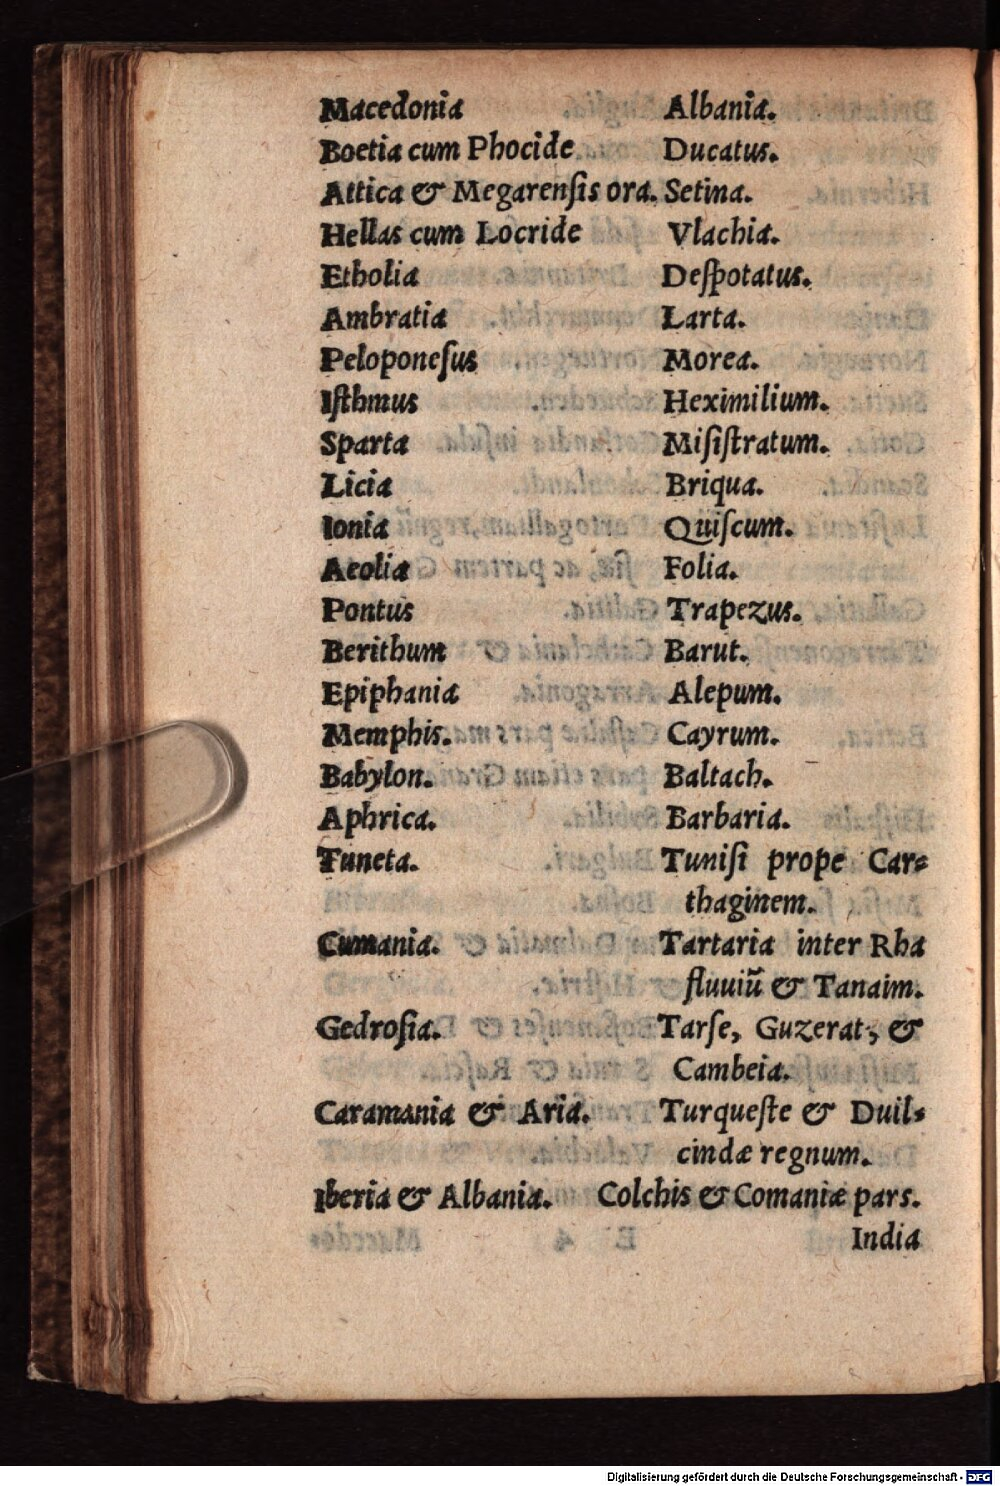 Macedonia Albania.
Boetia cum Phocide Ducatus.
Attica & Megarenſis ora. Setina.
Hellas cum Locride Vlachia.
Etholia Deſpotatus.
Ambratia Larta.
Peloponeſus Morea.
Iſthmus Heximilium.
Sparta Miſiſtratum.
Licia Briqua.
Ionia Quiſcum.
Aeolia Folia.
Pontus Trapezus.
Berithum Barut.
Epiphania Alepum.
Memphis. Cayrum.
Babylon. Baltach.
Aphrica. Barbaria.
Tuneta. Tuniſi prope Car⸗
thaginem.
Cumania. Tartaria inter Rha
fluuiū & Tanaim.
Gedroſia. Tarſe, Guzerat, &
Cambeia.
Caramania & Aria. Turqueſte & Duil⸗
cindæ regnum.
Iberia & Albania. Colchis & Comaniæ pars.
India
Digitalisierung gefördert durch die Deutsche Forschungsgemeinschaft - DFG